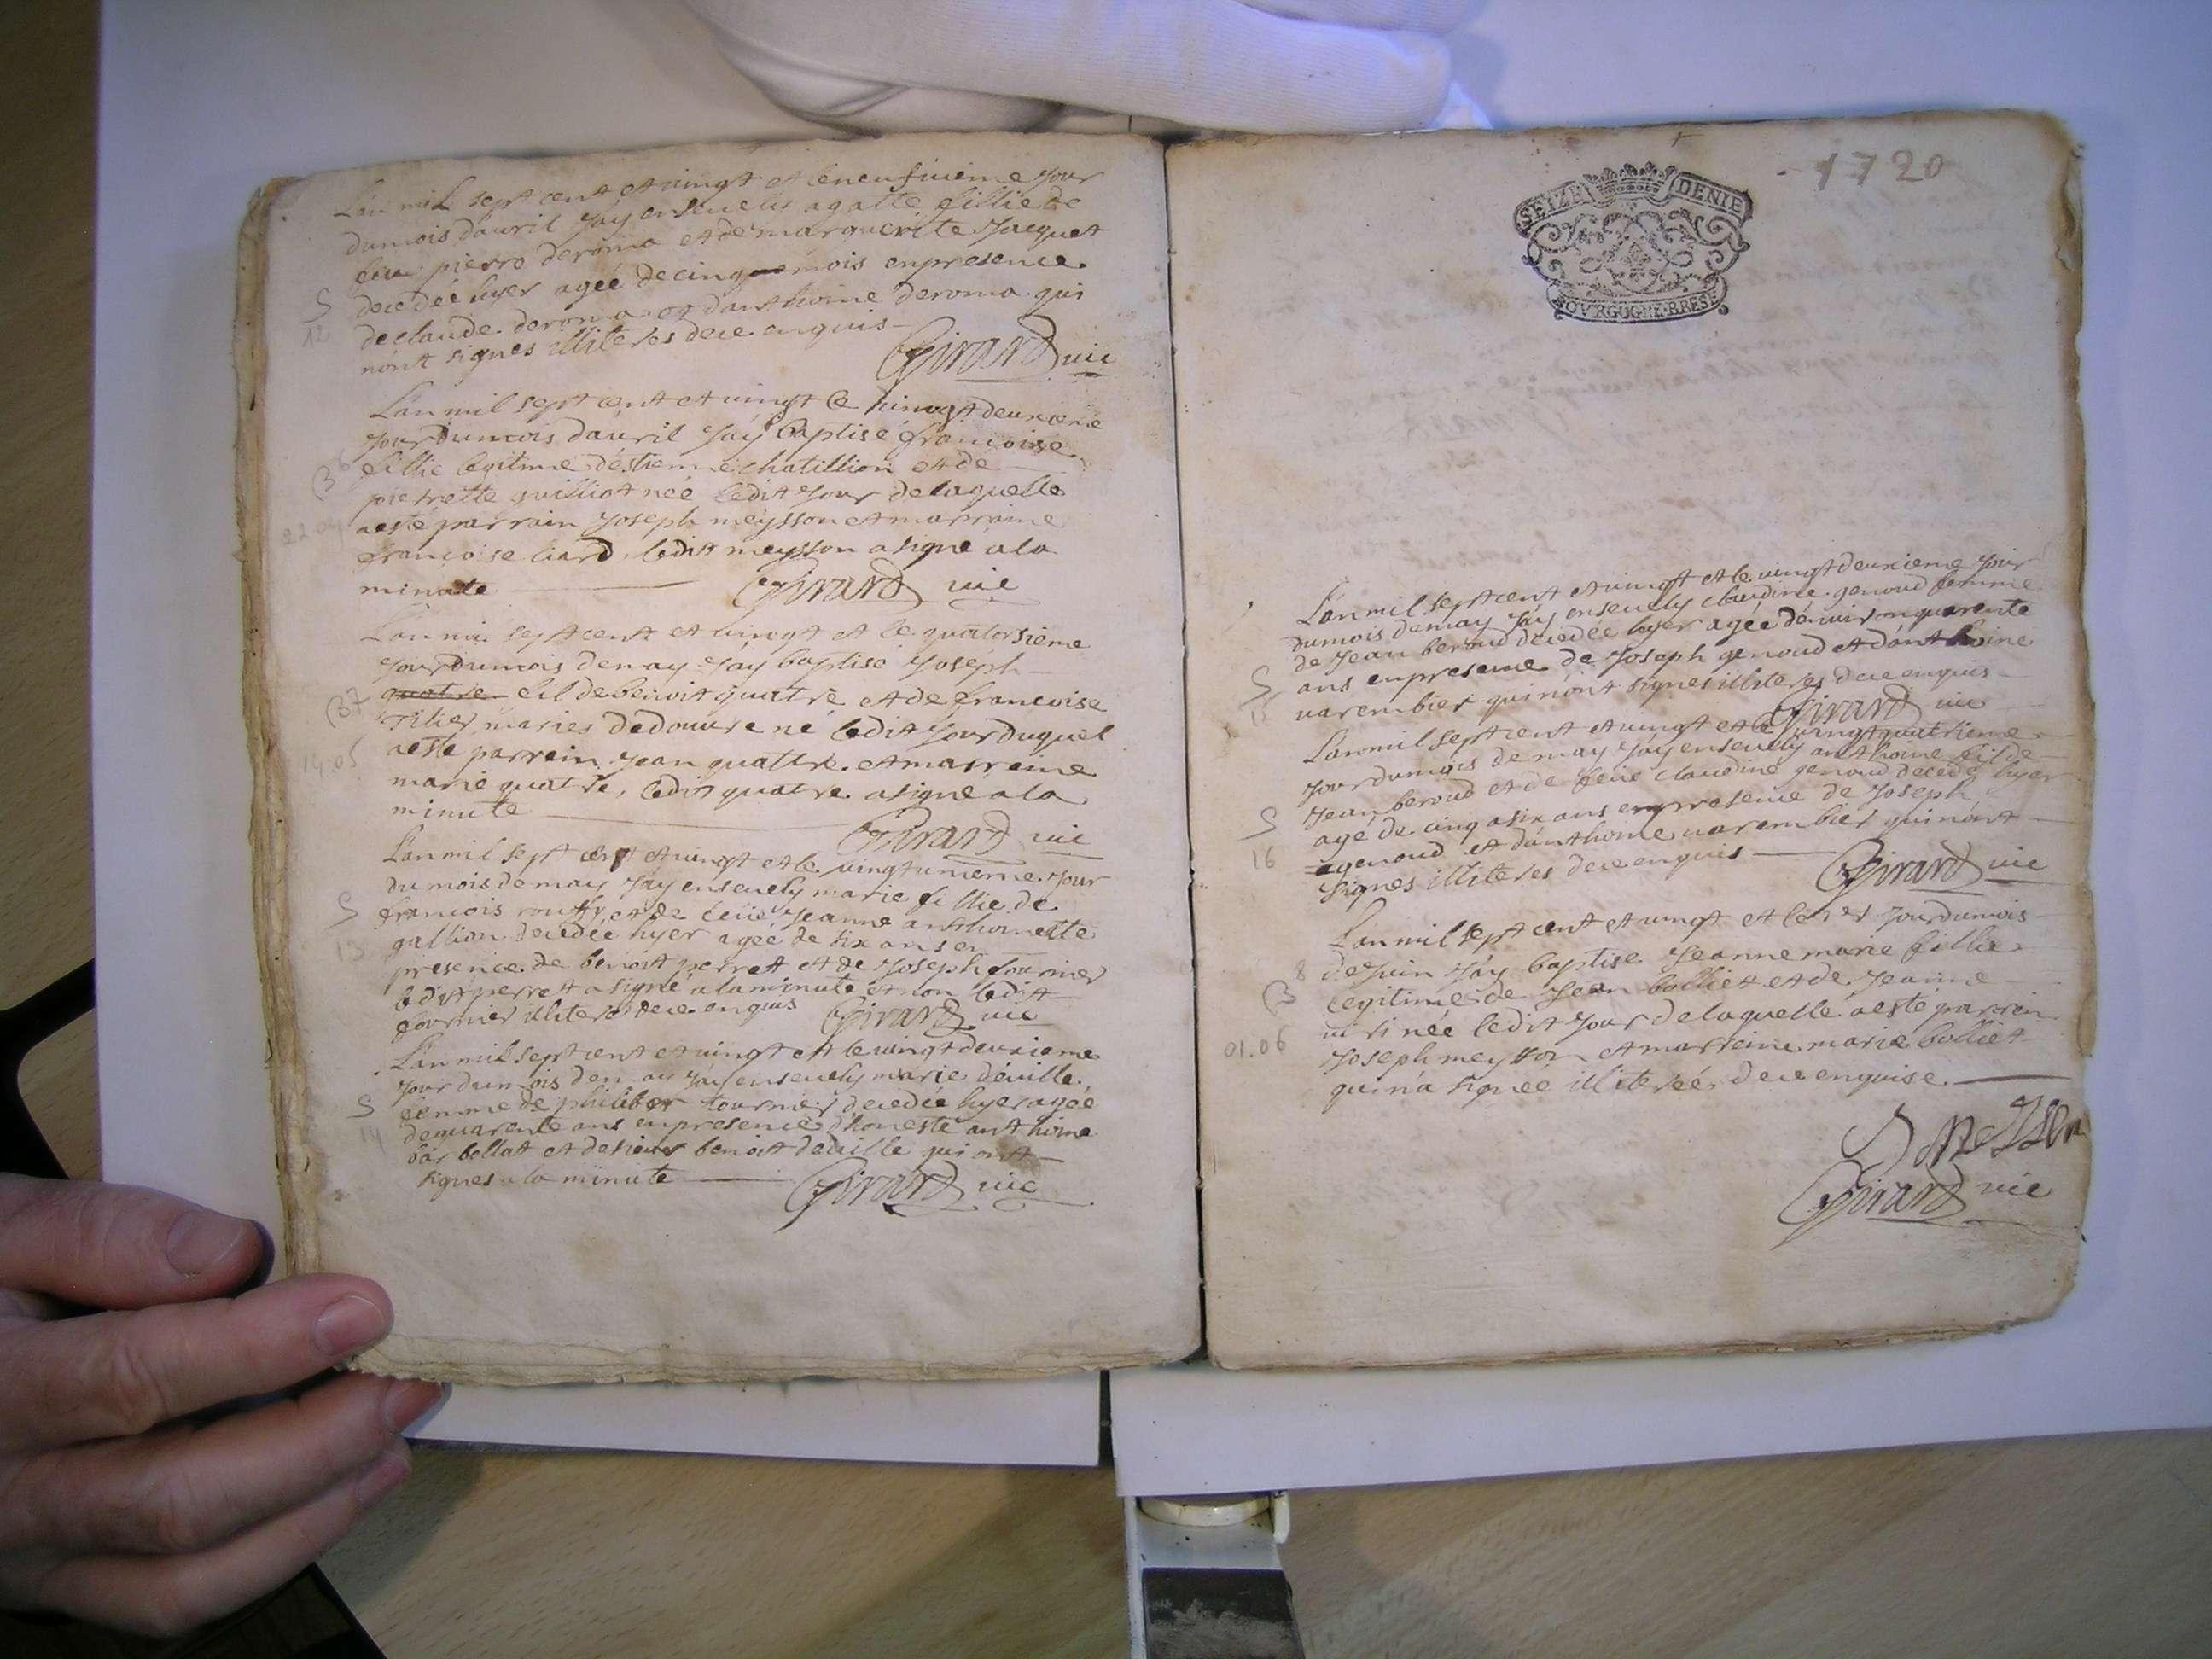 L'an mil sept cent et vingt et le neufvieme jour
du mois d'auril j'ay enseuelis agatte fillie de
feu pierre deroma et de marguerite Jacquet
decedée hyer agée de cinq mois en presence
S
12
de claude deroma et d'anthoine deroma qui
n'ont signes illiteres de ce enquis
Girard vic
L'an mil sept cent et vingt le vingt deuxieme
jour du mois d'auril j'ay baptisé francoise
B 6
fillie legitime d'estienne chatillion et de
pierrette guilliot née ledit jour de laquelle
22.04
a esté parrain Joseph meysson et marraine
francoise liard, ledit meysson a signé a la
minute
Girard vic
L'an mil sept cent et vingt et le quatorsieme
jour du mois de may j'ay baptisé Joseph
B 7
quatre fil de benoit quatre et de francoise
Tilier maries de douure né ledit jour duquel
14.05
a esté parrein Jean quattre et marreine
marie quatre, ledit quatre a signé a la
minute
Girard vic
L'an mil sept cent et vingt et le vingt unieme jour
du mois de may j'ay enseuely marie fillie de
S
13
francois rouffy et de feüe Jeanne anthoinette
gallion decedée hyer agée de six ans en
presence de benoit perret et de Joseph fournier
ledit perret a signé a la minute et non ledit
fournier illiteré de ce enquis
Girard vic
L'an mil sept cent et vingt et le vingt deuxieme
jour du mois de may j'ay enseuely marie deville
S
14
femme de philibert tournier decedée hyer agée
de quarente ans en presence d'honeste anthoine
bar bollat et de sieur benoit deville qui ont
signes a la minute
Girard vic
1720
SEIZE DENIE
BOVRGOGNE BRESE
L'an mil sept cent et vingt et le vingt deuxieme jour
du mois de may j'ay enseuely claudine genoud femme
de Jean beroud decedée hyer agée d'enuiron quarente
S
15
ans en presence de Joseph genoud et d'anthoine
varembier qui n'ont signes illiteres de ce enquis
Girard vic
L'an mil sept cent et vingt et le vingt quatrieme
jour du mois de may j'ay enseuely anthoine fil de
Jean beroud et de feüe claudine genoud decedé hyer
S
16
agé de cinq a six ans en presence de Joseph
genoud et d'anthoine varembier qui n'ont
signes illiteres de ce enquis
Girard vic
L'an mil sept cent et vingt et le 1er jour du mois
8
B
de Juin j'ay baptise Jeanne marie fillie
legitime de Jean bolliet et de Jeanne
01.06
née ledit jour de laquelle a esté parrein
Joseph meysson et marreine marie bolliet
qui n'a signée illiterée de ce enquise.
Girard vic